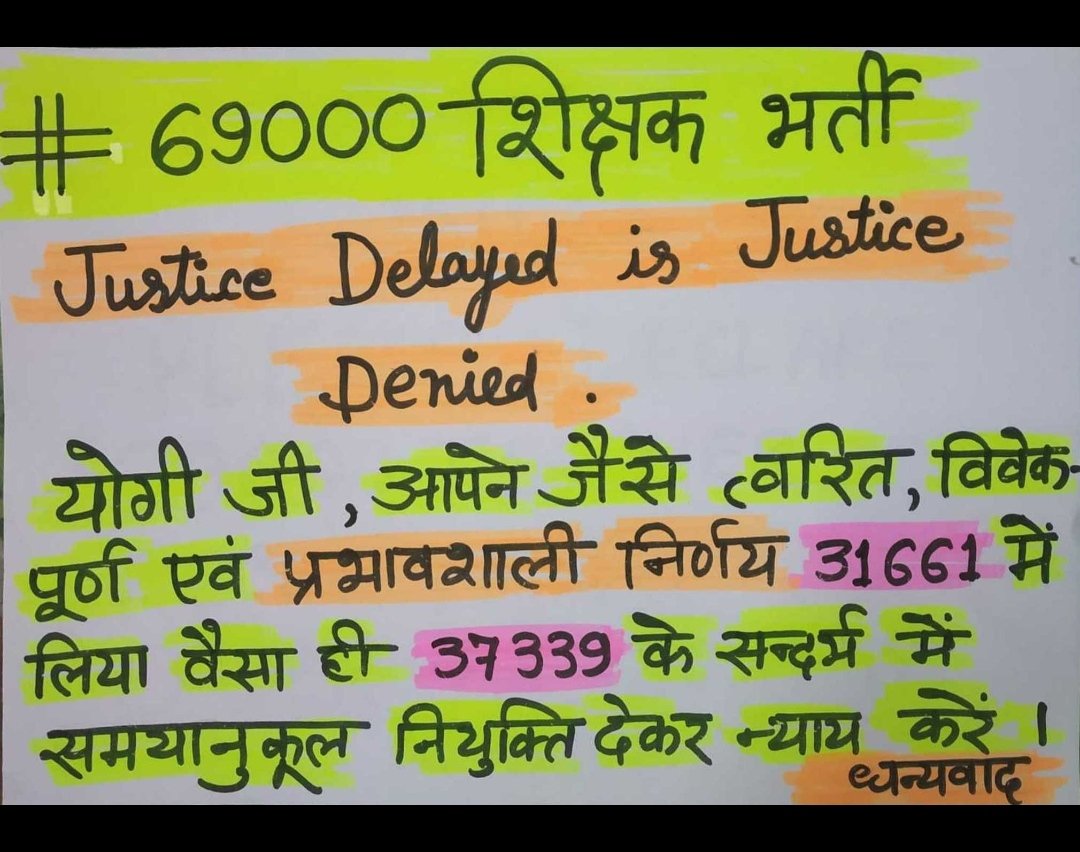 # 69000 शिक्षक भर्ती
Justice Delayed is Justice
Denied .
योगी जी , आपने जैसे त्वरित, विवेक-
पूर्ण एवं प्रभावशाली निर्णय 31661 में
लिया वैसा ही 37339 के सन्दर्भ में
समयानुकूल नियुक्ति देकर न्याय करें ।
धन्यवाद